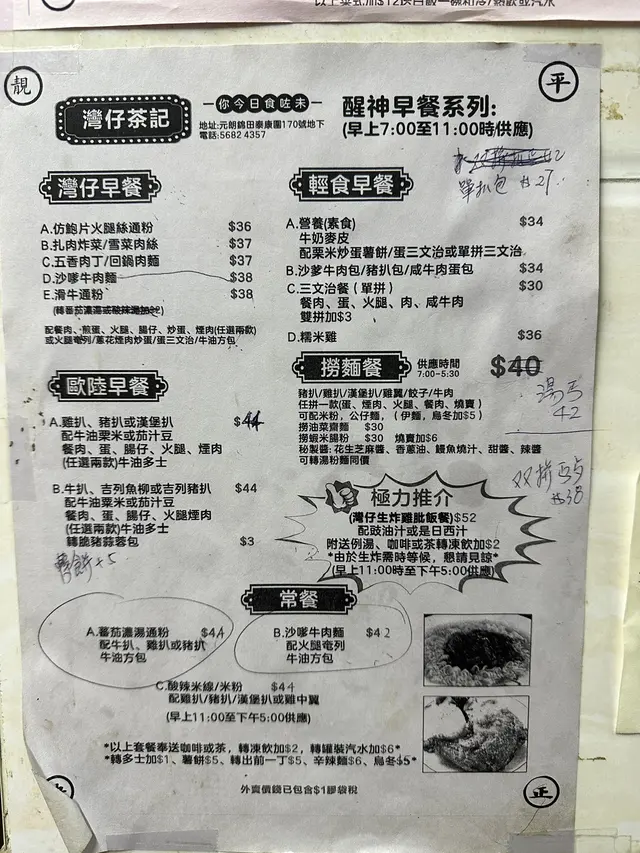 以上菜式加$12送白飯一碗和冷/熱飲或汽水
靚
平
灣仔茶記
你今日食咗未
地址:元朗錦田泰康圍170號地下
電話:5682 4357
醒神早餐系列:
(早上7:00至11:00時供應)
單扒包 $27
灣仔早餐
A.仿鮑片火腿絲通粉 $36
B.扎肉炸菜/雪菜肉絲 $37
C.五香肉丁/回鍋肉麵 $37
D.沙嗲牛肉麵 $38
E.滑牛通粉 $38
配餐肉、煎蛋、火腿、腸仔、炒蛋、煙肉(任選兩款)
或火腿奄列/蔥花煙肉炒蛋/蛋三文治/牛油方包
輕食早餐
A.營養(素食) $34
牛奶麥皮
配栗米炒蛋薯餅/蛋三文治或單拼三文治
B.沙爹牛肉包/豬扒包/咸牛肉蛋包 $34
C.三文治餐(單拼) $30
餐肉、蛋、火腿、肉、咸牛肉
雙拼加$3
D.糯米雞 $36
歐陸早餐
A.雞扒、豬扒或漢堡扒 $44
配牛油栗米或茄汁豆
餐肉、蛋、腸仔、火腿、煙肉
(任選兩款)牛油多士
B.牛扒、吉列魚柳或吉列豬扒 $44
配牛油粟米或茄汁豆
餐肉、蛋、腸仔、火腿煙肉
(任選兩款)牛油多士
轉脆豬蒜蓉包 $3
薯餅+5
撈麵餐
供應時間
7:00-5:30
$40
湯馬
42
豬扒/雞扒/漢堡扒/雞翼/餃子/牛肉
任拼一款(蛋、煙肉、火腿、餐肉、燒賣)
可配米粉,公仔麵,(伊麵,烏冬加$5)
撈油菜齋麵 $30
撈蝦米腸粉 $30 燒賣加$6
秘製醬:花生芝麻醬、香蔥油、鰻魚燒汁、甜醬、辣醬
可轉湯粉麵同價
双拼
$38
極力推介
(灣仔生炸雞髀飯餐)$52
配豉油汁或是日西汁
附送例湯、咖啡或茶轉凍飲加$2
*由於生炸需時等候,懇請見諒*
(早上11:00時至下午5:00供應)
常餐
A.蕃茄濃湯通粉 $44
配牛扒、雞扒或豬扒
牛油方包
B.沙嗲牛肉麵 $42
配火腿奄列
牛油方包
C.酸辣米線/米粉 $44
配雞扒/豬扒/漢堡扒或雞中翼
(早上11:00至下午5:00供應)
*以上套餐奉送咖啡或茶,轉凍飲加$2,轉罐裝汽水加$6*
*轉多士加$1、薯餅$5、轉出前一丁$5、辛辣麵$6、烏冬$5*
正
外賣價錢已包含$1膠袋稅